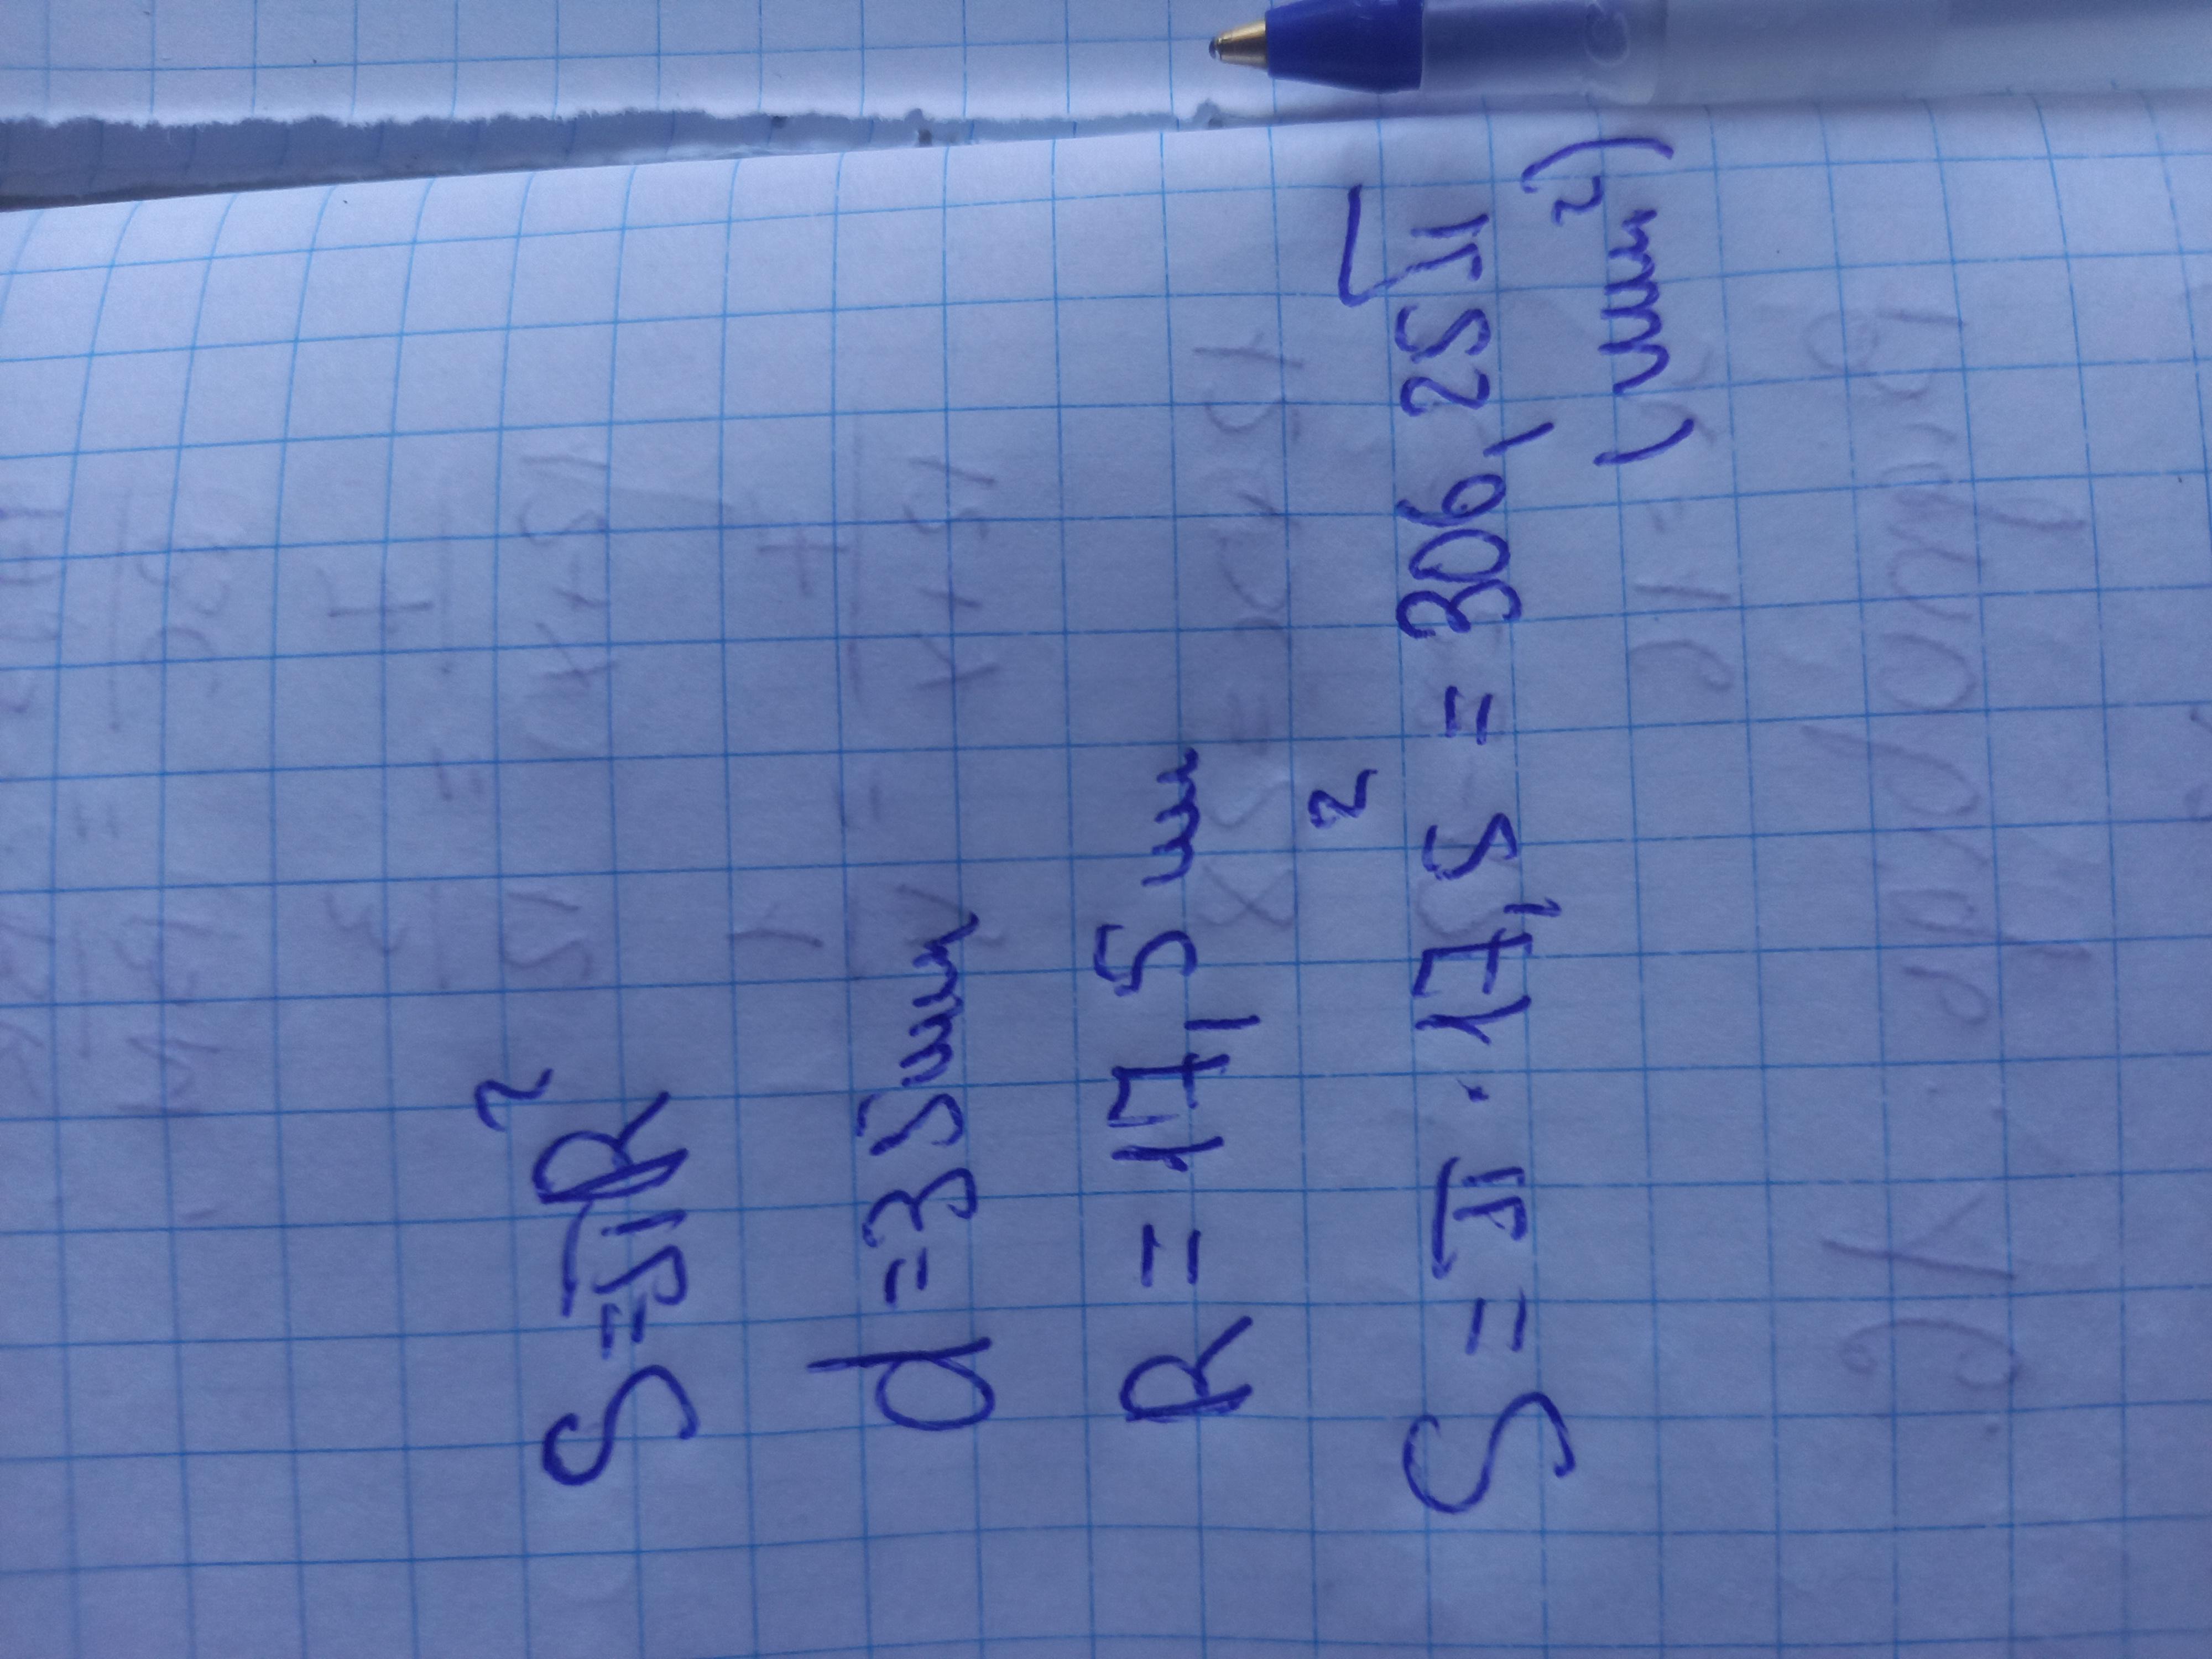 S=πR²
d=35мм
R=17,5мм
S=π·17,5²=306,25π
(мм²)